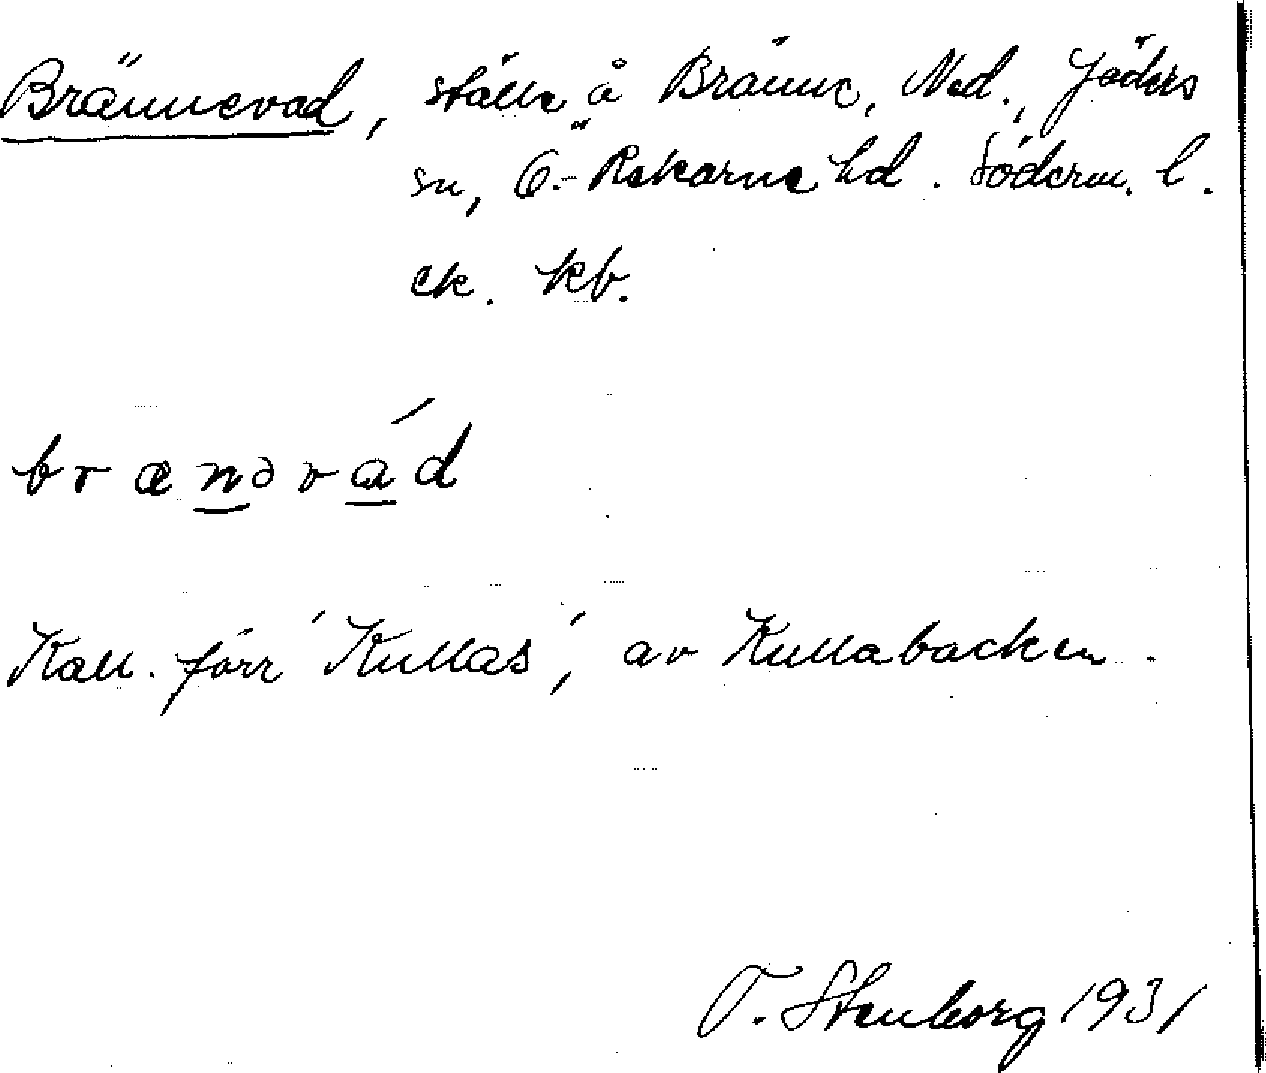 Brännevad, ställe å Bränne, Ned., Jäders
sn, Ö.-Rekarne hd. Söderm. l.
ek. kb.
brænəvád
Kall. förr 'Kullas', av Kullabacken.
T. Stenborg 1931